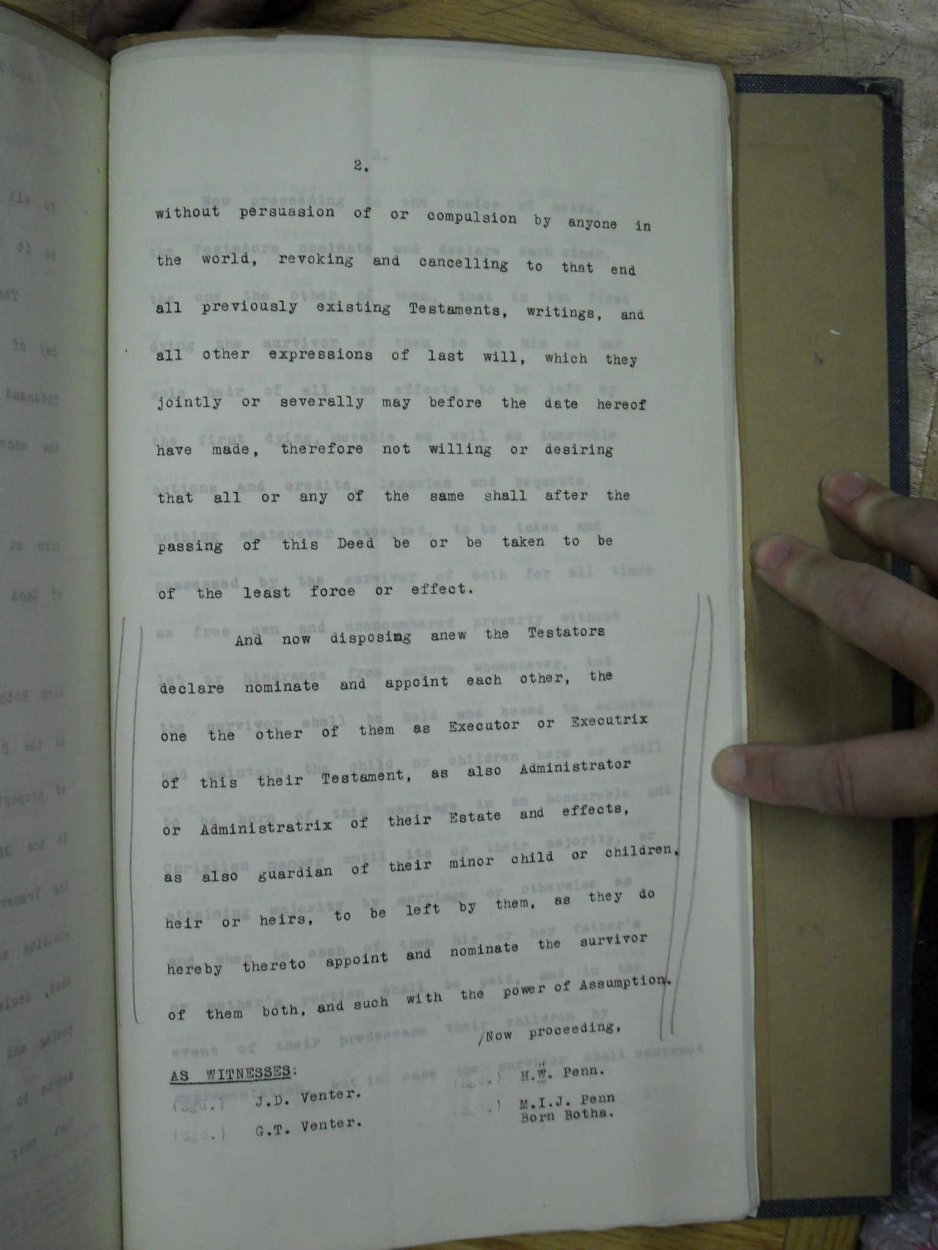 2.
without persuasion of or compulsion by anyone in
the world, revoking and cancelling to that end
all previously existing Testaments, writings, and
all other expressions of last will, which they
jointly or severally may before the date hereof
have made, therefore not willing or desiring
that all or any of the same shall after the
passing of this Deed be or be taken to be
of the least force or effect.
And now disposing anew the Testators
declare nominate and appoint each other, the
one the other of them as Executor or Executrix
of this their Testament, as also Administrator
or Administratrix of their Estate and effects,
as also guardian of their minor child or children,
heir or heirs, to be left by them, as they do
hereby thereto appoint and nominate the survivor
of them both, and such with the power of Assumption.
/Now proceeding,
AS WITNESSES:
(sgd.) J.D. Venter.
(sgd.) G.T. Venter.
(sgd.) H.W. Penn.
(sgd.) M.I.J. Penn
Born Botha.